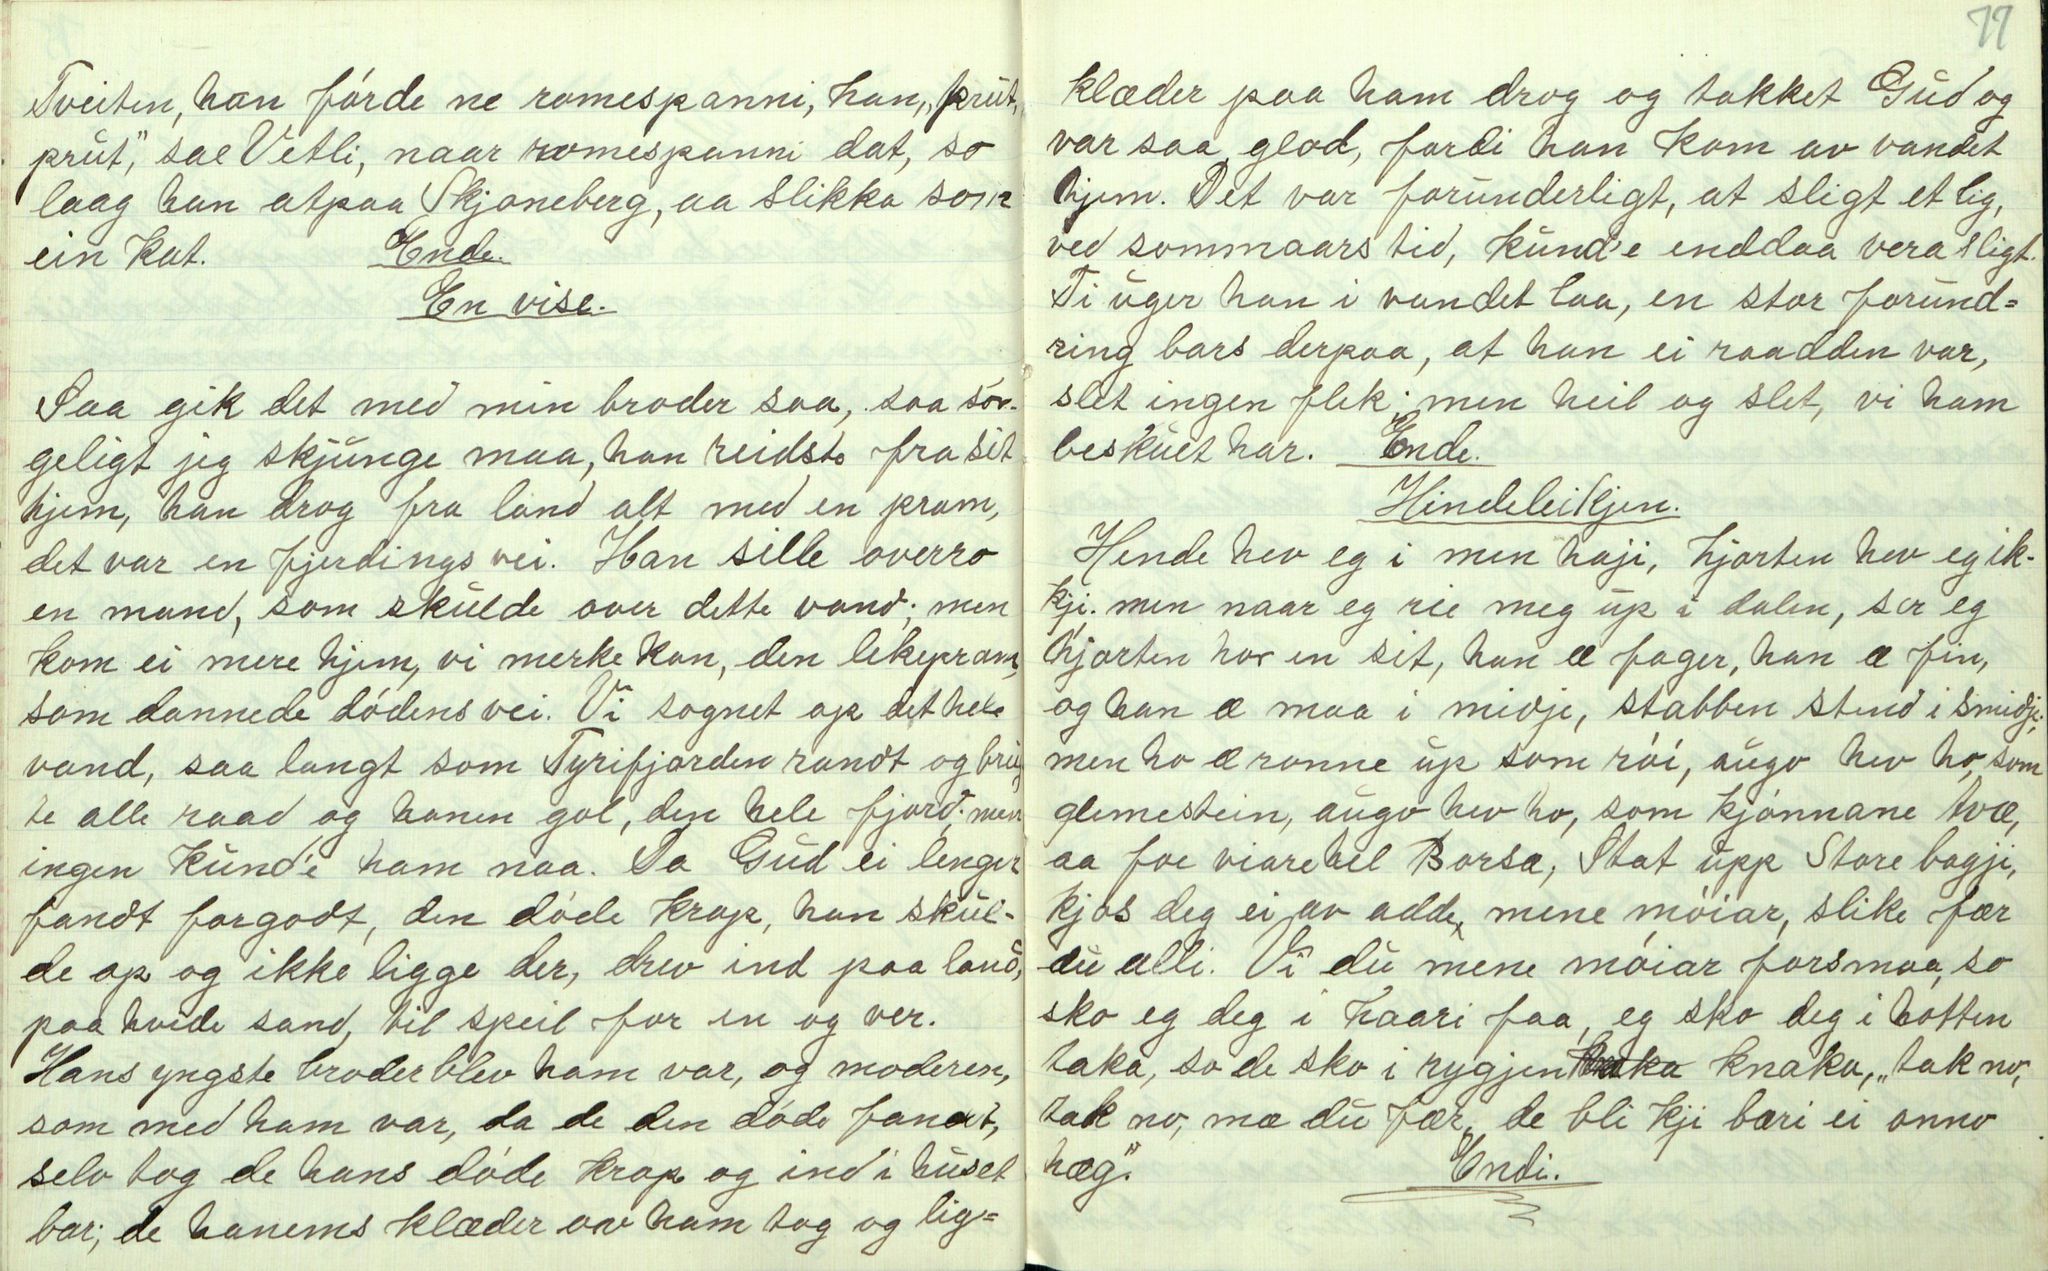 Tveiten, han fórde ne romespanni, han, „prut,
prut," sae Vetli, naar romespanni dat, so
laag han atpaa Skjoneberg, aa slikka som
ein kat. Ende.
En vise.
Saa gik det med min broder saa, saa sór-
geligt jeg skjunge maa, han reidste fra sit
hjem, han drog fra land alt med en pram,
det var en fjerdings vei. Han sille overro
en mand, som skulde over dette vand; men
kom ei mere hjem, vi merke kan, den likepram,
som dannede dódens vei. Vi sognet op det hele
vand, saa langt som Tyrifjorden randt og brug
te alle raad og hanen gol, den hele fjord; men
ingen kunde ham naa. Da Gud ei lenger
fandt forgodt, den dóde krop, han skul-
de op og ikke ligge der, drev ind paa land,
paa hvide sand, til speil for en og ver.
Hans yngste broder blev ham var, og moderen,
som med ham var, da de den dóde fandt,
selv tog de hans dóde krop og ind i huset
bar; de hanems klæder av ham tog og lig=
77
klæder paa ham drog og takket Gud og
var saa glad, fordi han kom av vandet
hjem. Det var forunderligt, at sligt et lig,
ved sommaars tid, kunde enddaa vera sligt.
Ti uger han i vandet laa, en stor forund=
ring bars derpaa, at han ei raadden var,
slet ingen flek; men heil og slet, vi ham
beskuet har. Ende.
Hindeleikjen.
Hende hev eg i men haji, hjorten hev eg ik-
kji; men naar eg rie meg up i dalen, ser eg
hjorten hor en sit, han æ fager, han æ fin,
og han æ maa i midje, stabben stend i smidje;
men ho æ ronne up som rói, augo hev ho, som
glemestein, augo hev ho, som kjónnane tvæ,
aa foe viare hel Borsæ, Stat upp Store bagji,
kjos deg ei av adde, mene móiar, slike fær
du alli. Vi du mene móiar forsmaa, so
sko eg deg i haari faa, eg sko deg i hotten
taka, so de sko i rygjen knaka, „tak no,
tak no, mæ du fær, de bli kji bæri ei onno
hæg".
Endi.